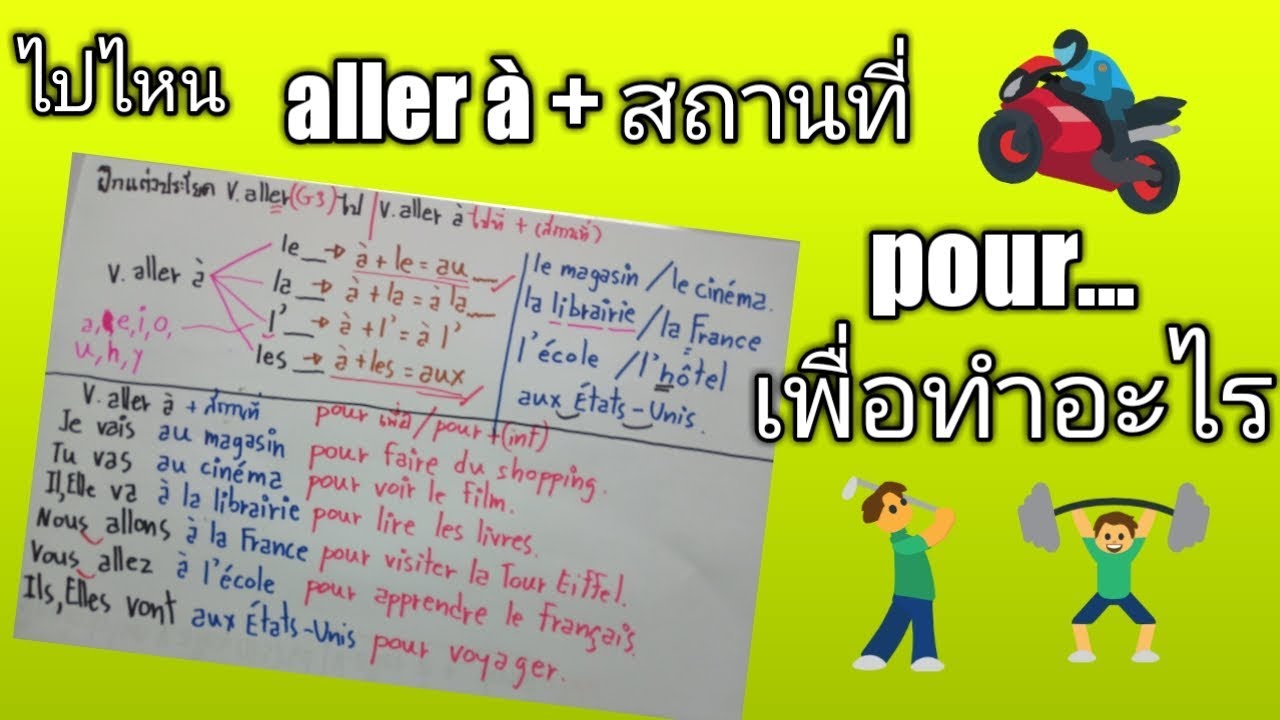 ไปไหน aller à + สถานที่
pour...
เพื่อทำอะไร
ฝึกแต่งประโยค V. aller (G3) ไป | V. aller à ไปที่ + (สถานที่)
V. aller à
a, e, i, o,
u, h, y
le __ → à + le = au __
la __ → à + la = à la __
l'__ → à + l' = à l'
les __ → à + les = aux
le magasin / le cinéma.
la librairie / la France
l'école / l'hôtel
aux États-Unis.
V. aller à + สถานที่ pour เพื่อ / pour + (inf)
Je vais au magasin pour faire du shopping.
Tu vas au cinéma pour voir le film.
Il, Elle va à la librairie pour lire les livres.
Nous allons à la France pour visiter la Tour Eiffel.
Vous allez à l'école pour apprendre le français.
Ils, Elles vont aux États-Unis pour voyager.